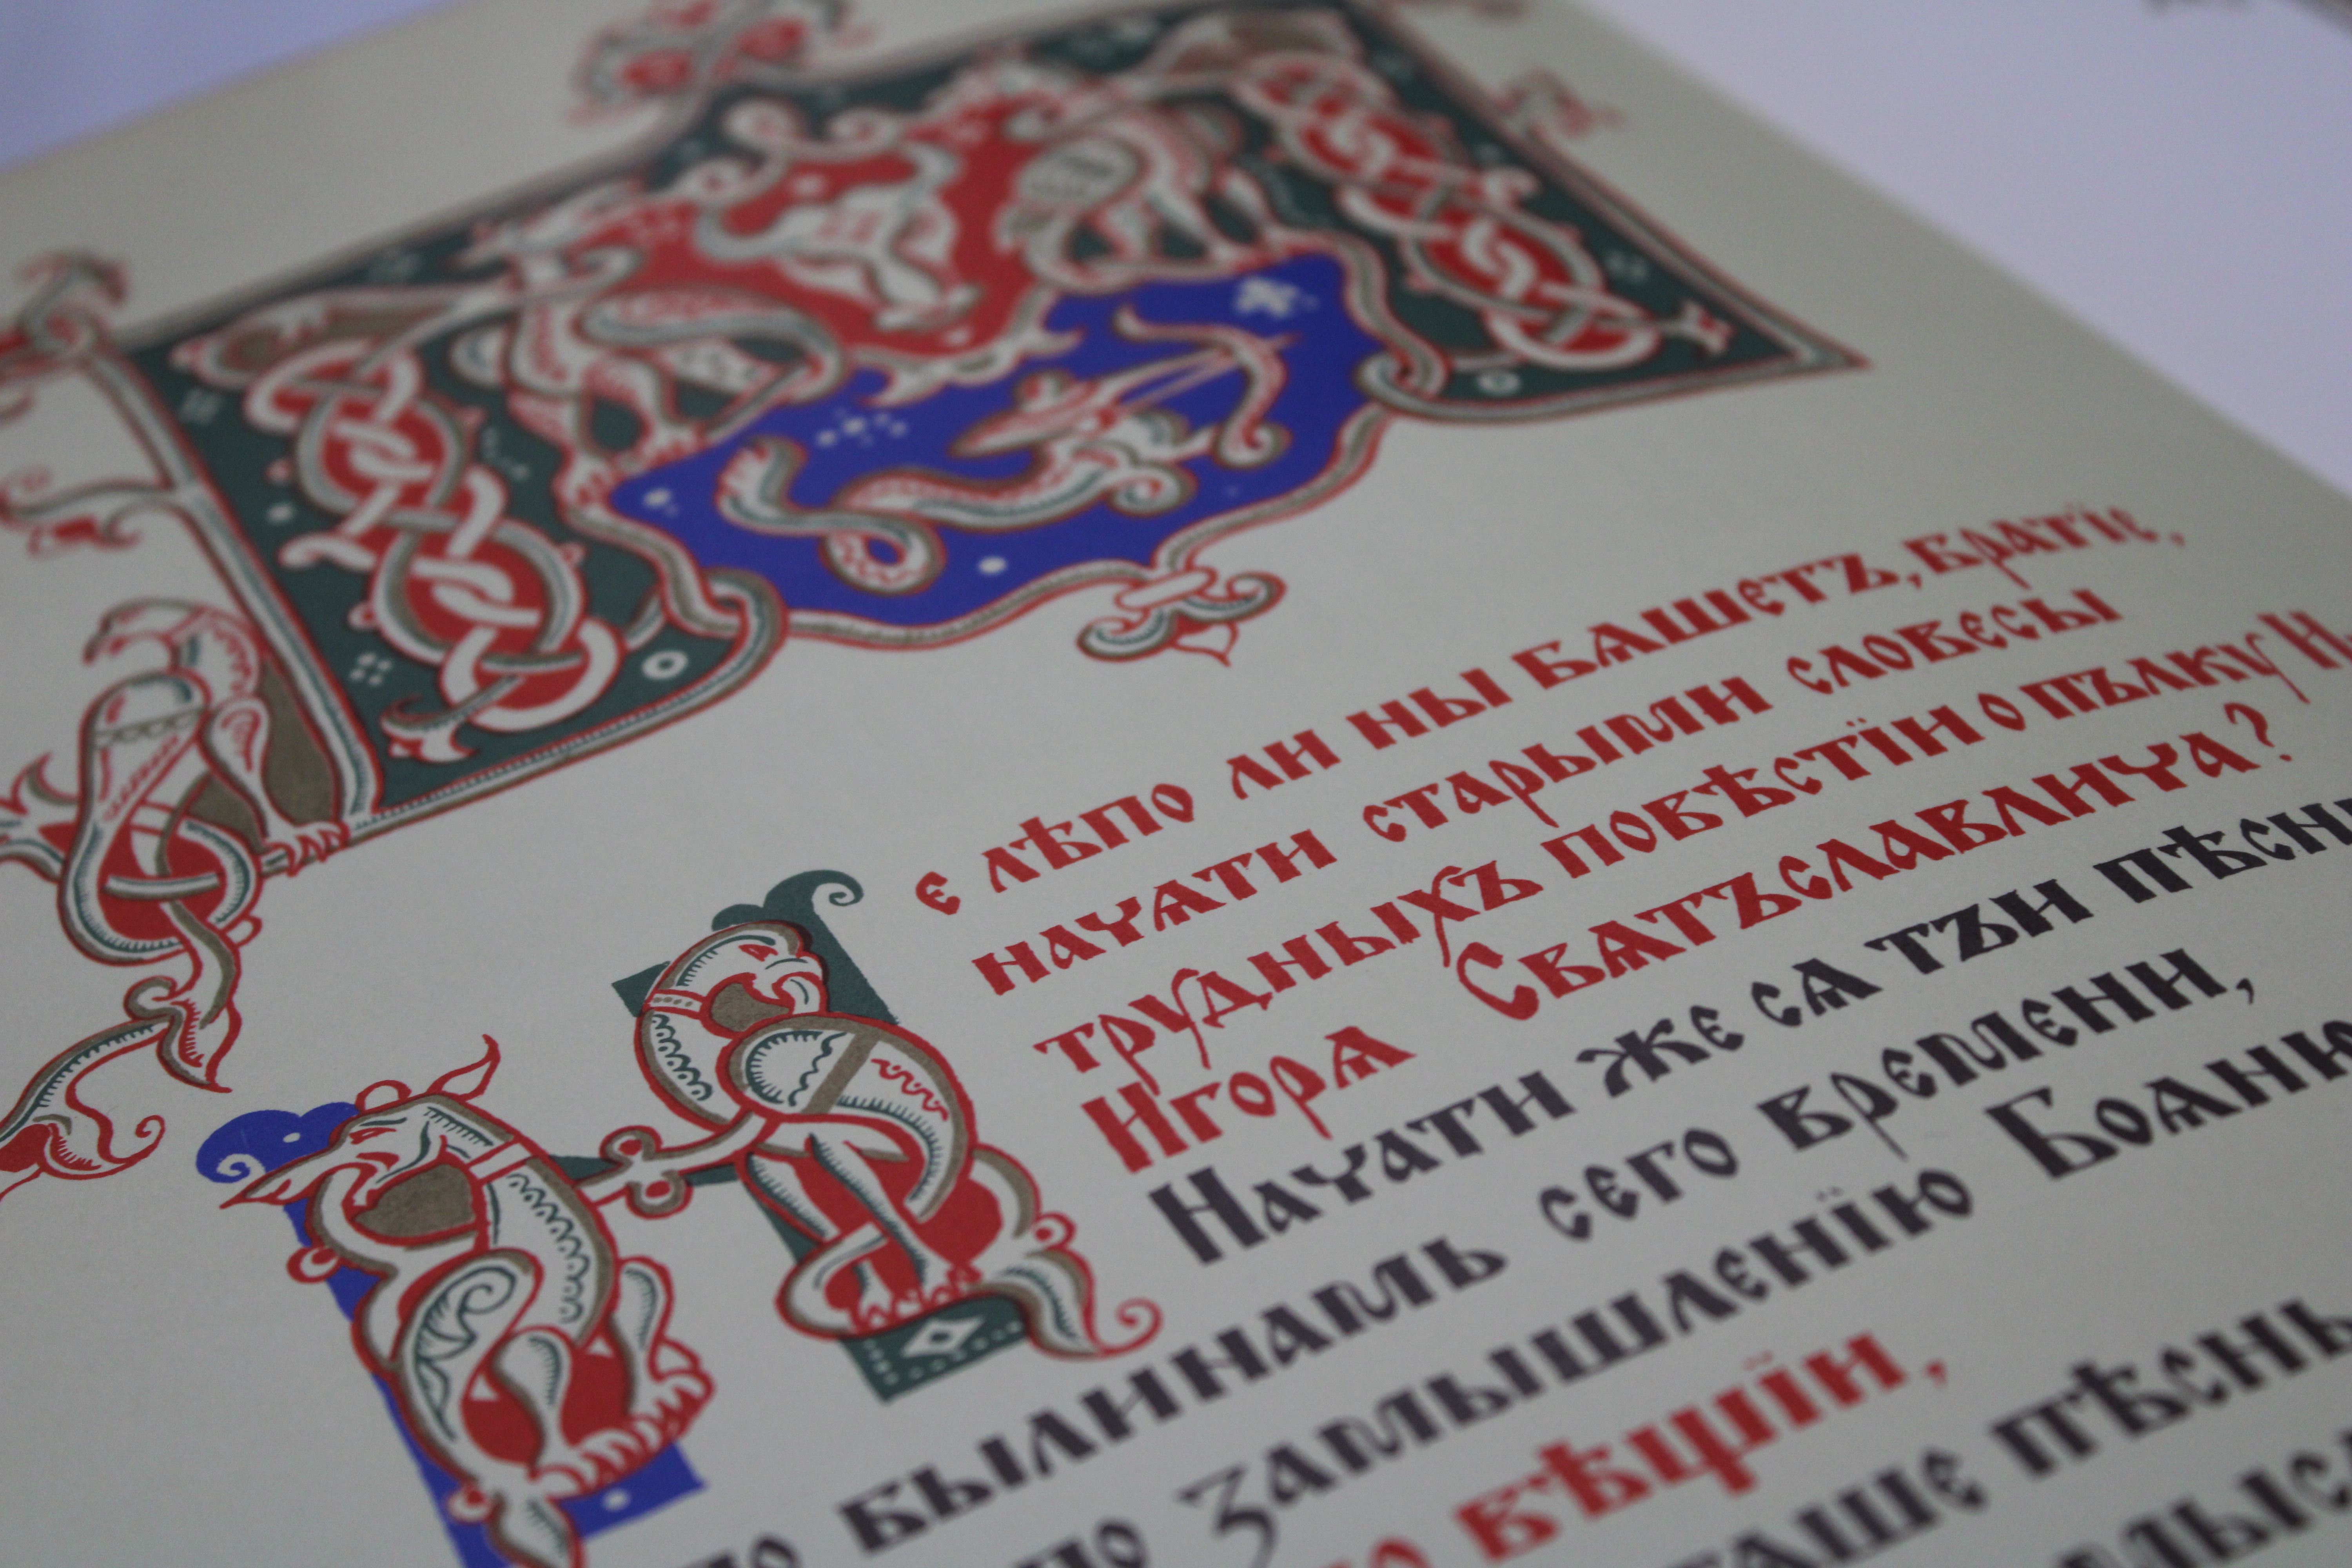 Не лѣпо ли ны бѧшетъ, братїе,
начѧти старыми словесы
трудныхъ повѣстїи о пълку И
Игорѧ Свѧтъславлича?
Начати же сѧ тъи пѣсни
по былинамь сего времени,
по замышленїю Боѧню
вѣщїи,
пѣснь